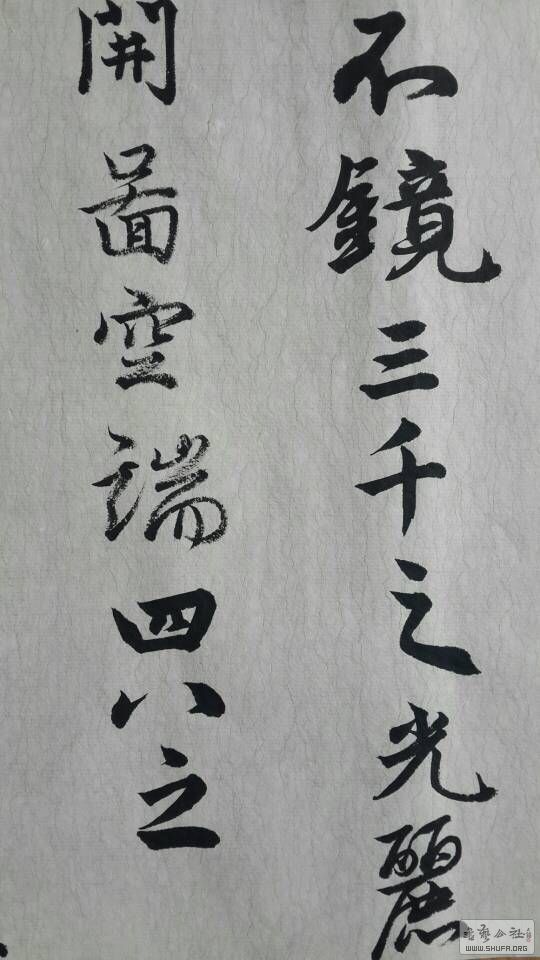 不鏡三千之光麗
開圖空端四八之
书艺公社
WWW.SHUFA.ORG